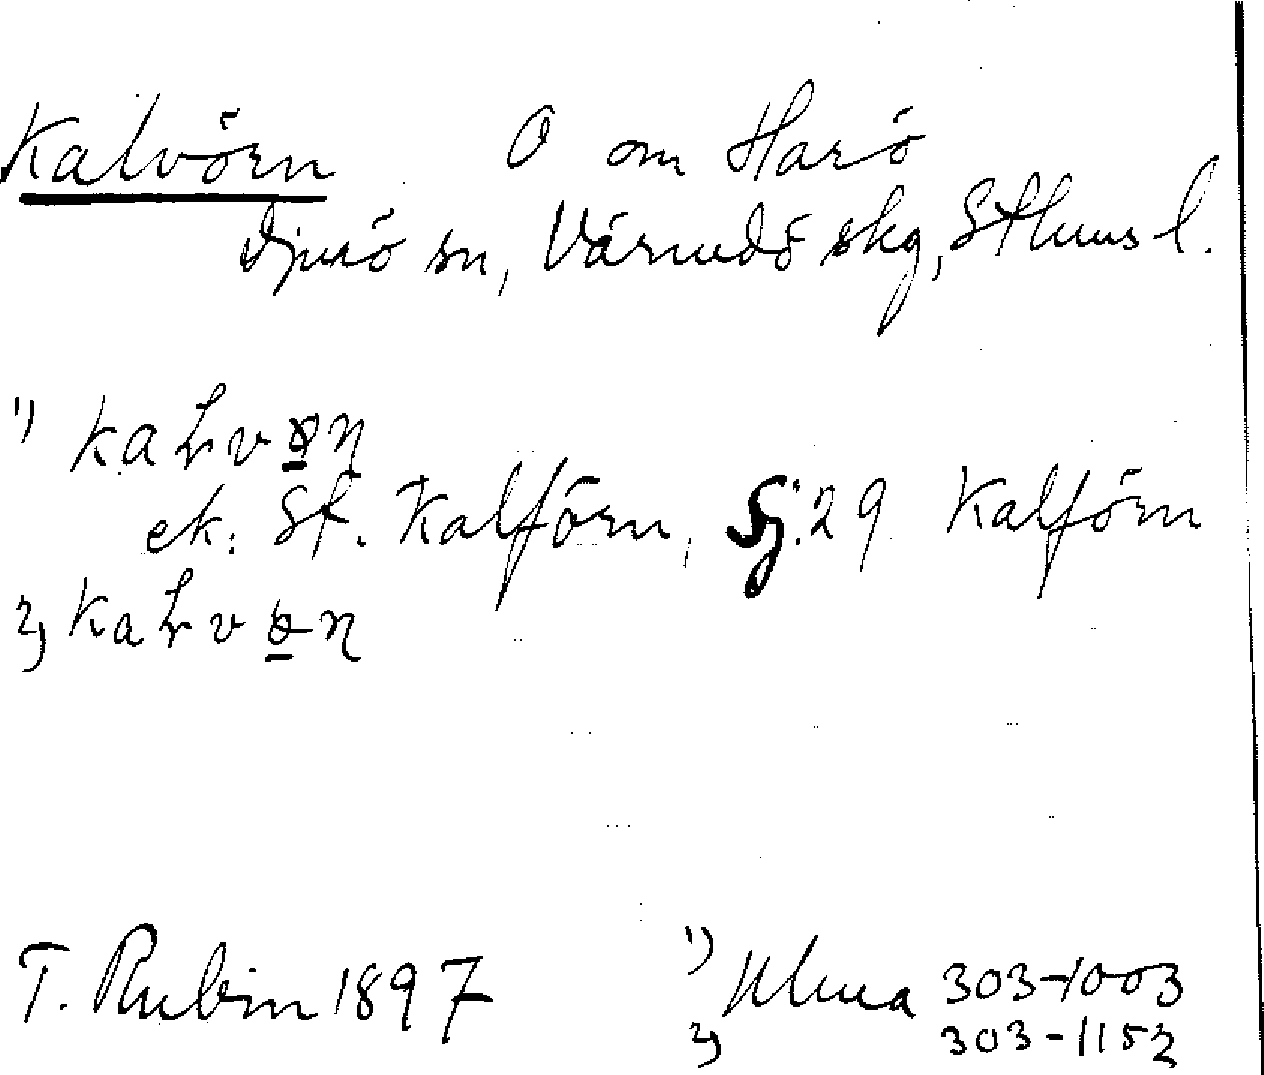 Kalvörn O om Harö
Djurö sn, Värmdö skg, Sthms l.
1) kaLvøn
ek: St. Kalförn, Sj. 29 Kalförn
2) kaLvøn
T. Rubin 1897 1) Ulma 303-1003
2) 303-1152